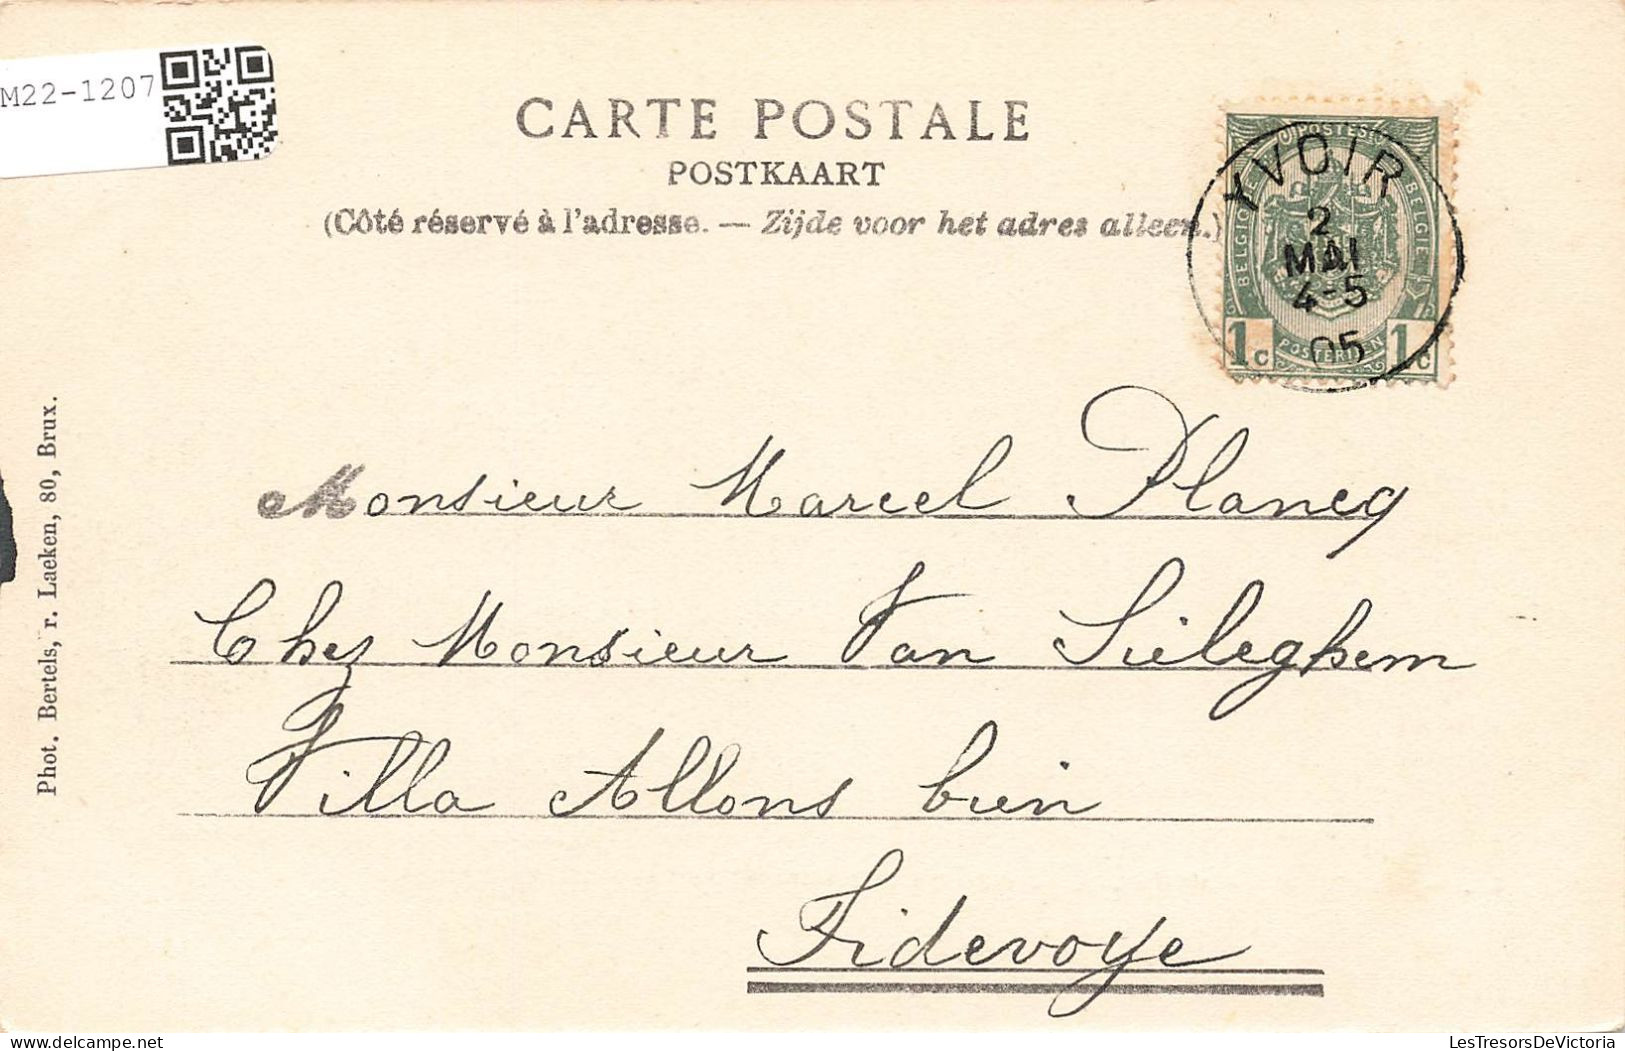 M22-1207
CARTE POSTALE
POSTKAART
(Côté réservé à l'adresse. — Zijde voor het adres alleen.)
POSTES
BELGIQUE
BELGIE
POSTERIJEN
1c 1c
YVOIR
2
MAI
4-5
05
Monsieur Marcel Plancq
Chez Monsieur Van Sieleghem
Villa Allons bien
Fidevoye
Phot. Bertels, r. Laeken, 80, Brux.
LesTresorsDeVictoria